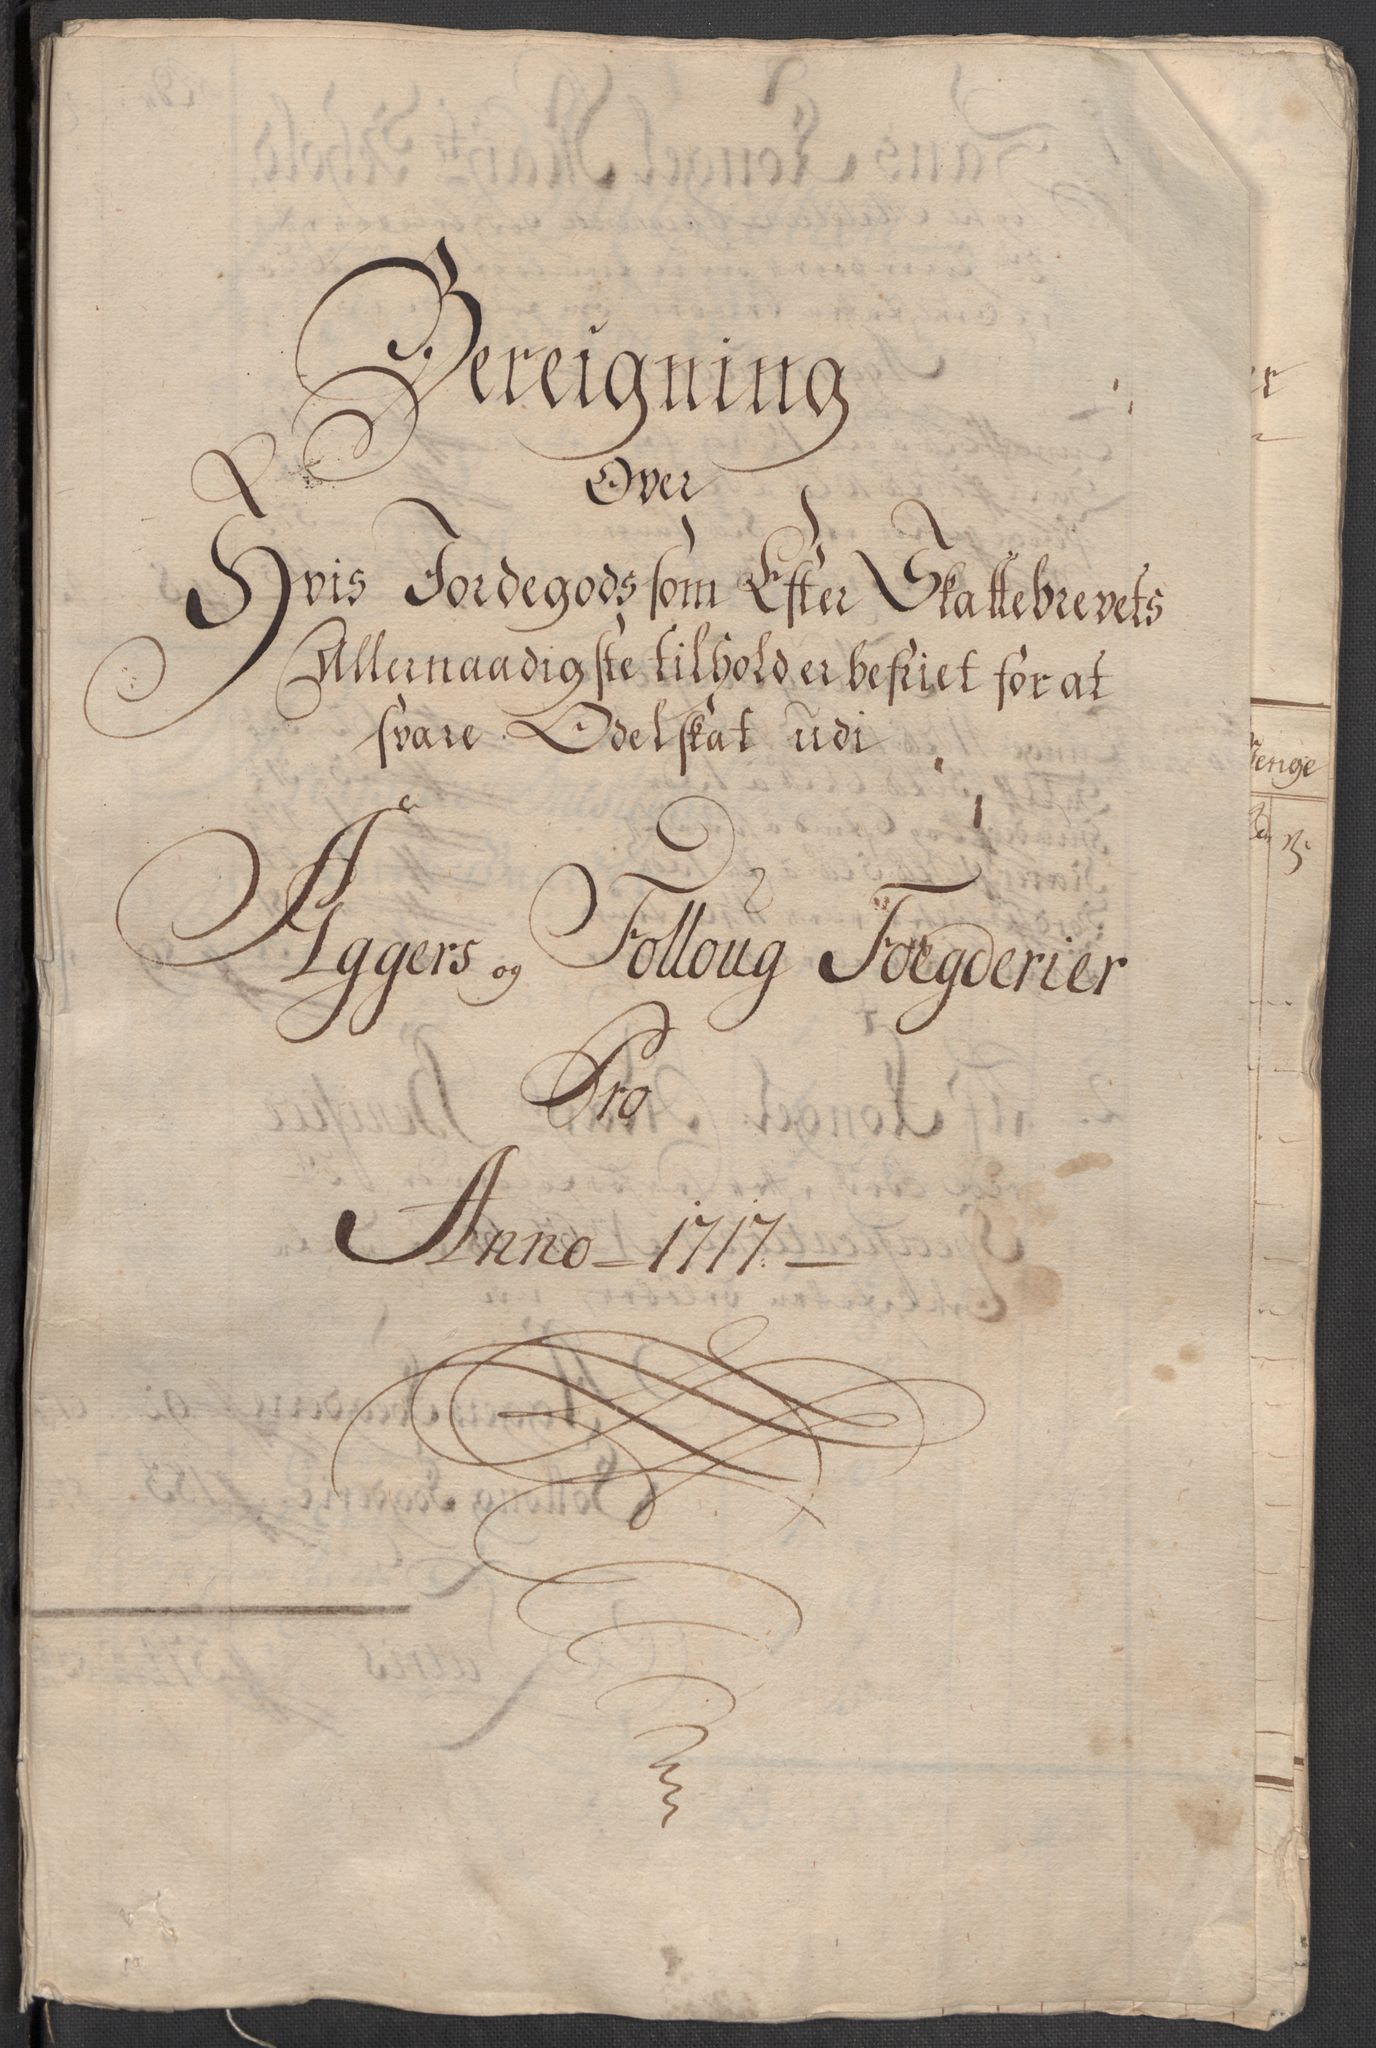 Bereigning
Over
Hvis Jordegods som Efter Skattebrevets
Allernaadigste tilhold er befriet for at
svare Odelskat udi
Aggers og Folloug Foegderier
Pro
Anno 1717
enge